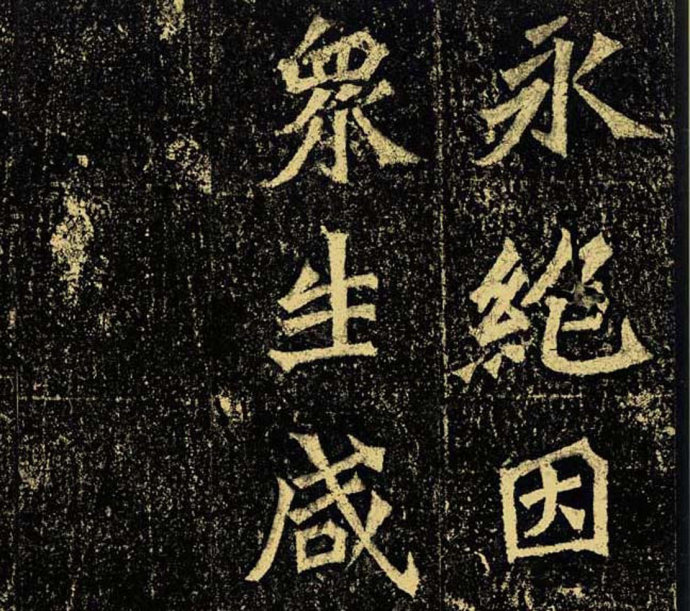 永絶因
衆生咸